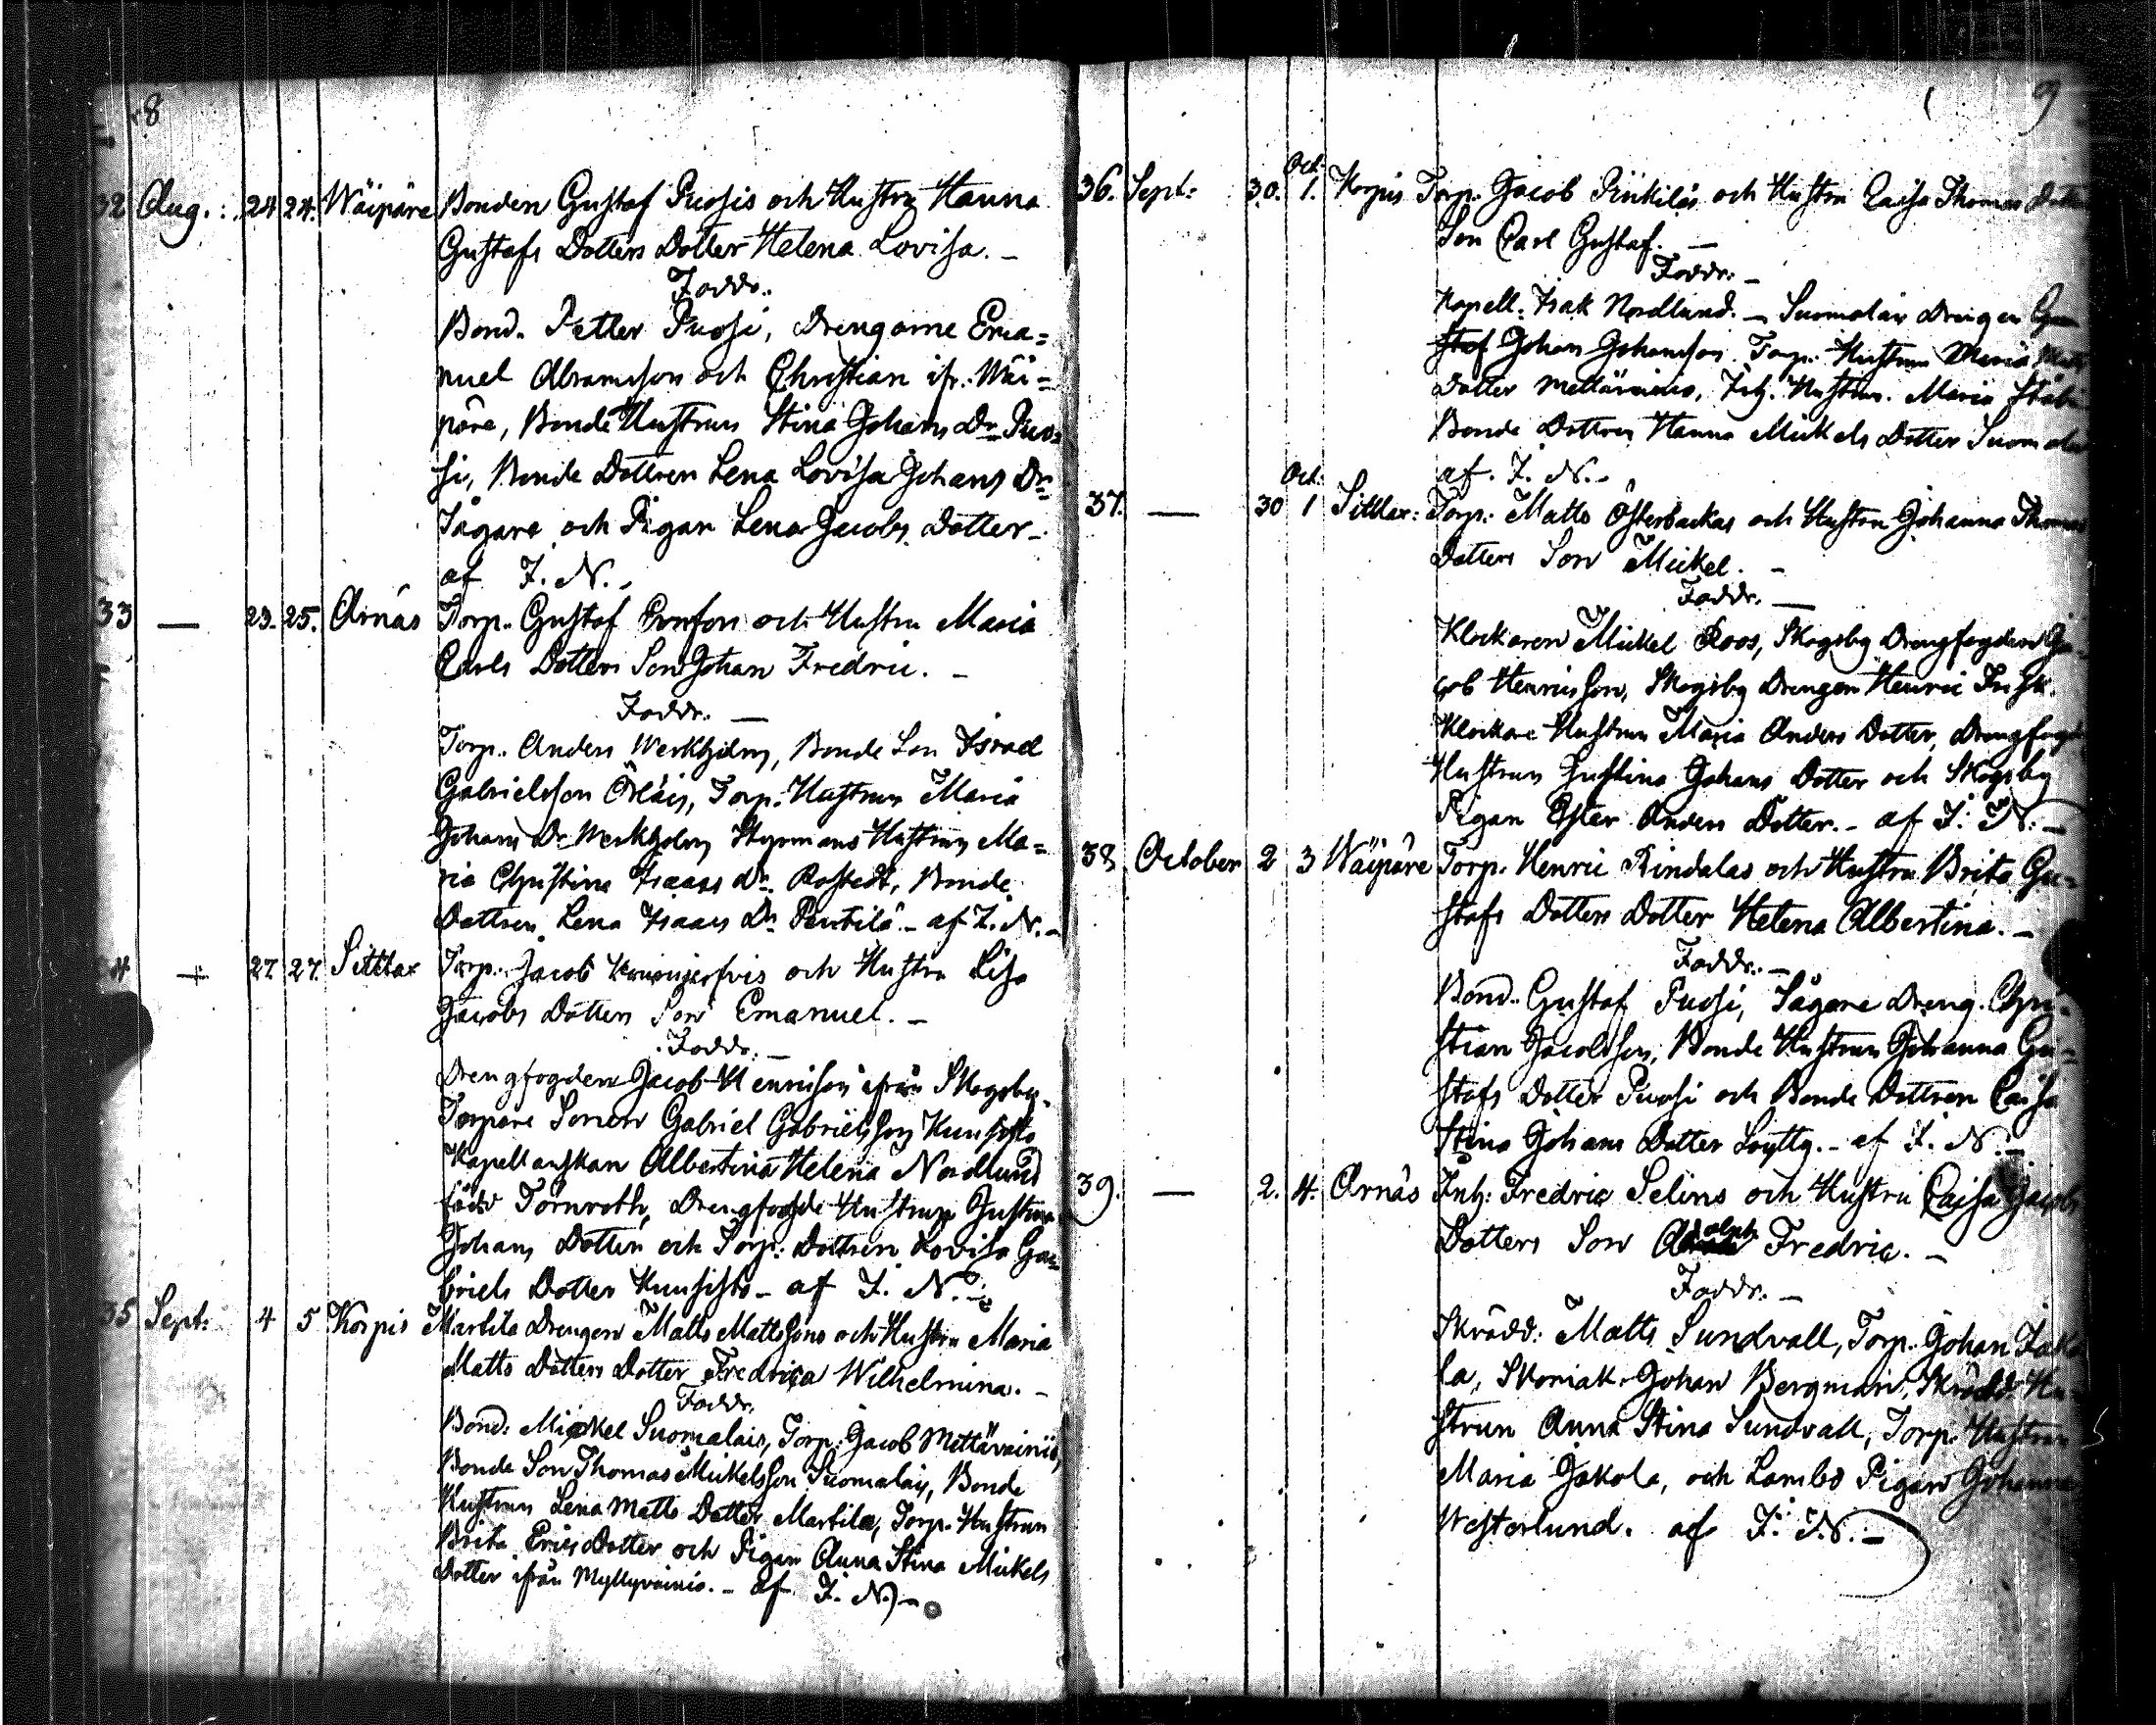 8
32 Aug.: 24 24. Wäipäre Bonden Gustaf Puosis och Hustru Hanna
Gustafs Dotters Dotter Helena Lovisa. –
Faddr:
Bond. Petter Puosi, Drengarne Ema=
nuel Abramsson och Christian ifr. Wäi=
päre, Bonde Hustrun Stina Johans Dr Puo=
si, Bonde Dottren Lena Lovisa Johans Dr
Sågare och Pigan Lena Jacobs Dotter –
af I. N. –
33 — 23. 25. Arnäs Torp. Gustaf och Hustru Maria
Carls Dotters Son Johan Fredric. –
Faddr. —
Torp. Anders Werkholm, Bonde Son Israel
Gabrielsson Torp. Hustrun Maria
Johans Dr Werkholm Styrmans Hustrun Ma=
ria Christina Isaacs Dr Rostedt, Bonde
Dottren Lena Isaacs Dr Penttilä – af I. N. –
4 — 27. 27. Sittlax Torp. Jacob och Hustru Lisa
Jacobs Dotters Son Emanuel. –
Faddr. –
Drengfogden Jacob Henrisson ifrån Skogsby.
Torpare Sonen Gabriel Gabrielsson Kunsisto
Kapellanskan Albertina Helena Nordlund
född Törnroth, Drengfogde Hustrun Justina
Johans Dotter och Torp: Dottren Lovisa Ga=
briels Dotter Kunsisto – af I. N. –
35 Sept: 4 5 Korpis Martila Drengen Matts Mattssons och Hustru Maria
Matts Dotters Dotter Fredrica Wilhelmina. –
Faddr.
Bond: Mickel Suomalais, Torp: Jacob Mettäväiniö,
Bonde Son Thomas Mickelsson Suomalais, Bonde
Hustrun Lena Matts Dotter Martila, Torp. Hustrun
Brita Erics Dotter och Pigan Anna Stina Mickels
Dotter ifrån Myllyväiniö. – af I. N. –
9
36. Sept: 30. Oct: 1. Korpis Torp. Jacob Pinkiläs och Hustru Caisa Thomas Dotters
Son Carl Gustaf. —
Faddr. –
Kapell. Isak Nordlund. – Suomalais Drengen Gu
staf Johan Johansson. Torp. Hustrun Maria Matts
Dotter Mettäväiniö, Inh. Hustrun Maria
Bonde Dottren Hanna Mickels Dotter Suomalais
af. I. N. –
37. — 30 Oct: 1 Sittlax: Torp: Matts Österbackas och Hustru Johanna Thomas
Dotters Son Mickel. –
Faddr. —
Klockaren Mickel Roos, Skogsby Drengfogden Ja=
cob Henrisson, Skogsby Drengen Henric Frisk.
Klockare Hustrun Maria Anders Dotter, Drengfogde
Hustrun Justina Johans Dotter och Skogsby
Pigan Ester Anders Dotter. – af I. N. –
38. October 2 3 Wäipäre Torp. Henric Rindalas och Hustru Brita Gu=
stafs Dotters Dotter Helena Albertina. –
Faddr. –
Bond. Gustaf Puosi, Sågare Dreng. Chri=
stian Jacobsson, Bonde Hustrun Johanna Gu=
stafs Dotter Puosi och Bonde Dottren Caisa
Stina Johans Dotter Löytty. – af I. N. –
39. — 2. 4. Arnäs Inh: Fredric Selins och Hustru Caisa Jacobs
Dotters Son Adolph Fredric. –
Faddr. –
Skrädd: Matts Sundvall, Torp. Johan Jako
la, Skomak. Johan Bergman, Skrädd: Hu=
strun Anna Stina Sundvall, Torp. Hustrun
Maria Jakola, och Lambo Pigan Johanna
Westerlund. af I. N. –